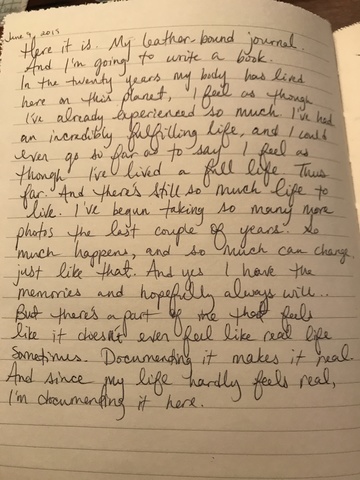 June 4, 2015
Here it is. My leather-bound journal.
And I'm going to write a book.
In the twenty years my body has lived
here on this planet, I feel as though
I've already experienced so much. I've had
an incredibly fulfilling life, and I could
even go so far as to say I feel as
though I've lived a full life thus
far. And there's still so much life to
live. I've begun taking so many more
photos the last couple of years. So
much happens, and so much can change,
just like that. And yes I have the
memories and hopefully always will..
But there's a part of me that feels
like it doesn't even feel like real life
sometimes. Documenting it makes it real.
And since my life hardly feels real,
I'm documenting it here.